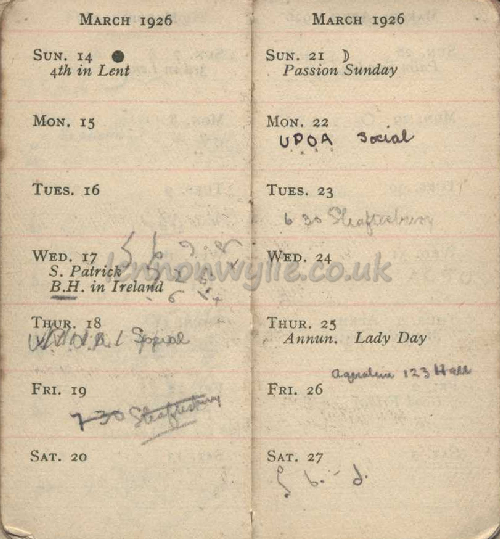 MARCH 1926
SUN. 14
4th in Lent
MON. 15
TUES. 16
WED. 17
S. Patrick
B.H. in Ireland
THUR. 18
Social
FRI. 19
7 30 Shaftesbury
SAT. 20
MARCH 1926
SUN. 21
Passion Sunday
MON. 22
UPOA Social
TUES. 23
6 30 Shaftesbury
WED. 24
THUR. 25
Annun. Lady Day
FRI. 26
123 Hall
SAT. 27
lennonwylie.co.uk